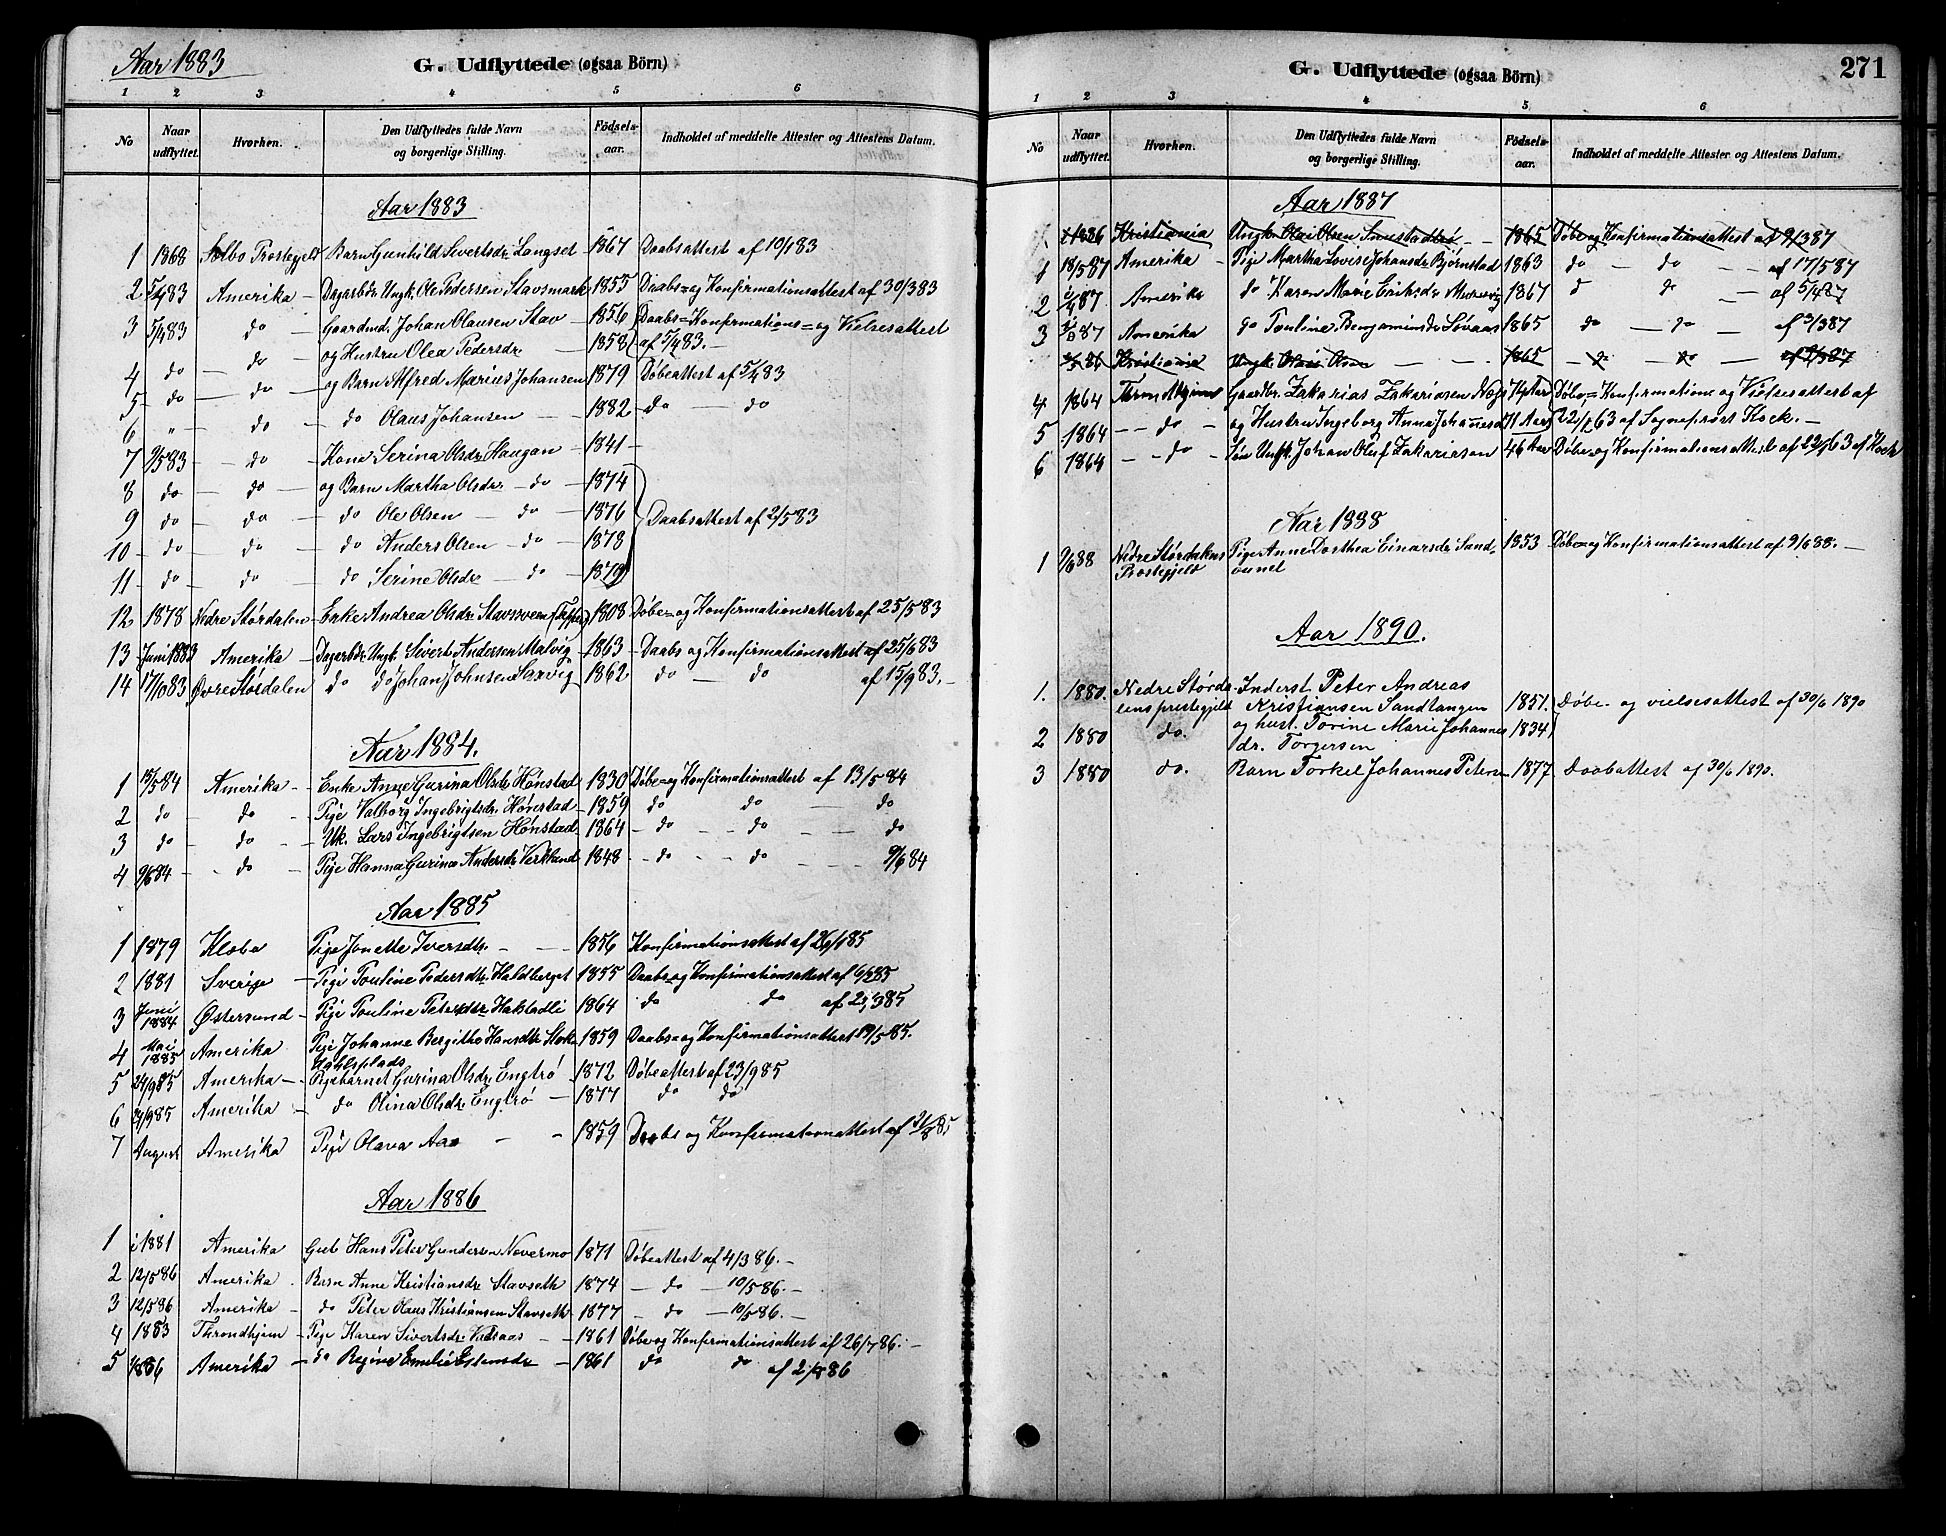 Aar 1883
G. Udflyttede (ogsaa Börn)
1 2 3 4 5 6
No Naar udflyttet. Hvorhen. Den Udflyttedes fulde Navn og borgerlige Stilling. Födselsaar. Indholdet af meddelte Attester og Attestens Datum.
Aar 1883
1 1868 Selbo Prestegjeld Barn Gunhild Sivertsdr Langset 1867 Daabsattest af 10/1 83
2 5/4 83 Amerika Dagarbdr Ungk. Ole Pedersen Stavsmark 1855 Daabs- og Konfirmationsattest af 30/3 83
3 5/4 83 do Gaardmd. Johan Olausen Stav 1856 Daabs= Konfirmations= og Vielsesattest
4 do do og Hustru Olea Pedersdr 1858 af 5/4 83.
5 do do og Barn Alfred Marius Johansen 1879 Döbeattest af 5/4 83
6 " do do Olaus Johansen 1882 do do
7 2/5 83 do Kone Serina Olsdr Haugan 1841
8 do do og Barn Martha Olsdr do 1874
9 do do do Ole Olsen do 1876 Daabsattest af 2/5 83
10 do do do Anders Olsen do 1878
11 do do do Serine Olsdr do 1879
12 1878 Nedre Stördalen Enke Andrea Olsdr Stavssveen 1808 Döbe= og Konfirmationsattest af 25/5 83
13 Juni 1883 Amerika Dagarbdr Ungk. Sivert Andersen Malvig 1863 Daabs og Konfirmationsattest af 25/6 83
14 17/10 83 Övre Stördalen do do Johan Johnsen Saxvig 1862 do do af 15/9 83.
Aar 1884.
1 15/5 84 Amerika Enke Anne Gurina Olsdr Hönstad 1830 Döbe= og Konfirmationsattest af 13/5 84
2 do do Pige Valborg Ingebrigtsdr Hönstad 1859 do do do
3 do do Uk. Lars Ingebrigtsen Hönstad 1864 do do do
4 9/6 84 do Pige Hanna Gurina Andersdr Verklund 1848 do do 9/6 84
Aar 1885
1 1879 Klæbu Pige Jonetta Iversdtr 1856 Konfirmationsattest af 26/1 85
2 1881 Sverige Pige Pouline Pedersdtr Haldberget 1855 Daabs= og Konfirmationsattest af 6/2 85
3 Juni 1884 Östersund Pige Pouline Petersdtr Hakstadli 1864 do do af 25/3 85
4 Mai 1885 Amerika Pige Johanne Bergitha Hansdtr Stok 1859 Daabs= og Konfirmationsattest 19/5 85.
5 24/9 85 Amerika Pigebarnet Gurina Olsdr Engtrö 1872 Döbeattest af 23/9 85
6 24/9 85 Amerika do Olina Olsdr Engtrö 1877 do do
7 August Amerika Pige Olava Aas 1859 Daabs og Konfirmationattest af 31/8 85
Aar 1886
1 i 1881 Amerika Gut Hans Peter Gundersen Nevermo 1871 Döbeattest af 4/3 86.
2 12/5 86 Amerika Barn Anne Kristiansdr Stavseth 1874 do 10/5 86.
3 12/5 86 Amerika do Peter Olaus Kristiansen Stavseth 1877 do 10/5 86.
4 1883 Throndhjem Pige Karen Sivertsdr Vulsaas 1861 Döbe og Konfirmationsattest af 26/7 86.
5 1886 Amerika do Regine Emelie Estensdr 1861 do do af 2/8 86
G. Udflyttede (ogsaa Börn)
271
1 2 3 4 5 6
No Naar udflyttet. Hvorhen. Den Udflyttedes fulde Navn og borgerlige Stilling. Födselsaar. Indholdet af meddelte Attester og Attestens Datum.
Aar 1887
i 1886 Kristiania Ungk. Olai Olsen Smestadbrö 1865 Döbe og Konfirmationsattest af 9/3 87
1 18/5 87 Amerika Pige Martha Lovise Johansdr Björnstad 1863 do do af 17/5 87
2 87 Amerika do Karen Marie Eriksdr 1867 do do af 5/4 87
3 87 Amerika do Pouline Benjaminsdr Lövaas 1865 do do af 3/3 87
86 Kristiania Ungk. Olaus Olsen 1865 do do 87
4 1864 Throndhjem Gaardbr. Zakarias Zakariasen Næss 74 Aar Döbe=Konfirmations og Vielsesattest af
5 1864 do og Hustru Ingeborg Anna Johannesd 71 Aar 22/1 63 af Sogneprest Kock.
6 1864 do Sön Ungk. Johan Oluf Zakariasen 46 Aar Döbe= og Konfirmationsattest af 22/1 63 af Kock
Aar 1888
1 9/6 88 Nedre Stördalens Prestegjeld Pige Anne Dorthea Einarsdr Sandvunet 1853 Döbe= og Konfirmationsattest af 9/6 88.
Aar 1890.
1. 1880. Nedre Störda- Inderst Peter Andreas
lens prestegjeld Kristiansen Sandtangen 1851. Döbe- og vielsesattest af 30/6 1890
2 1880 do. og hust. Torine Marie Johannes 1834
dr. Torgersen
3 1880 do. Barn Torkel Johannes Peters 1877 Daabattest af 30/6 1890.